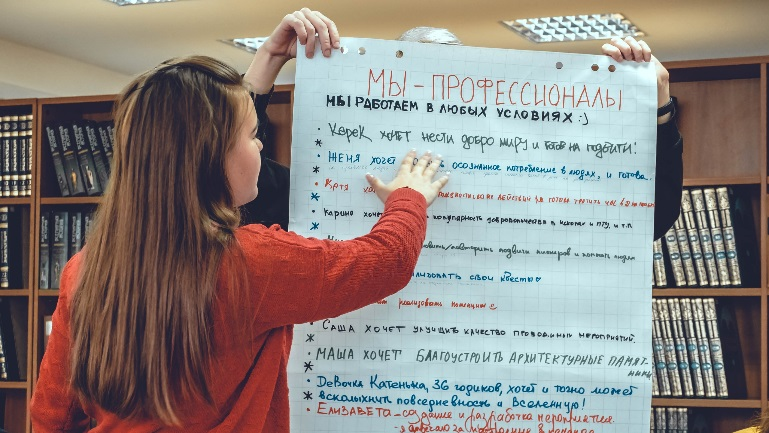 МЫ - ПРОФЕССИОНАЛЫ
МЫ РАБОТАЕМ В ЛЮБЫХ УСЛОВИЯХ :)
хочет нести добро миру и готов на подвиги!
Женя хочет осознанное потребление в людях, и готова..
Катя действий и готова тратить
Карина хочет популярность добровольчества в и ПТУ, и т.п
повторить подвиги пионеров и
свои квесты
реализовать
Саша хочет улучшить качество проводимых мероприятий.
Маша хочет благоустроить архитектурные памят-
ники
Девочка Катенька, 36 годиков, хочет и точно может
всколыхнуть повседневность и Вселенную!
Елизавета - создание и разработка мероприятие.
- я отвечаю за настроение в команде